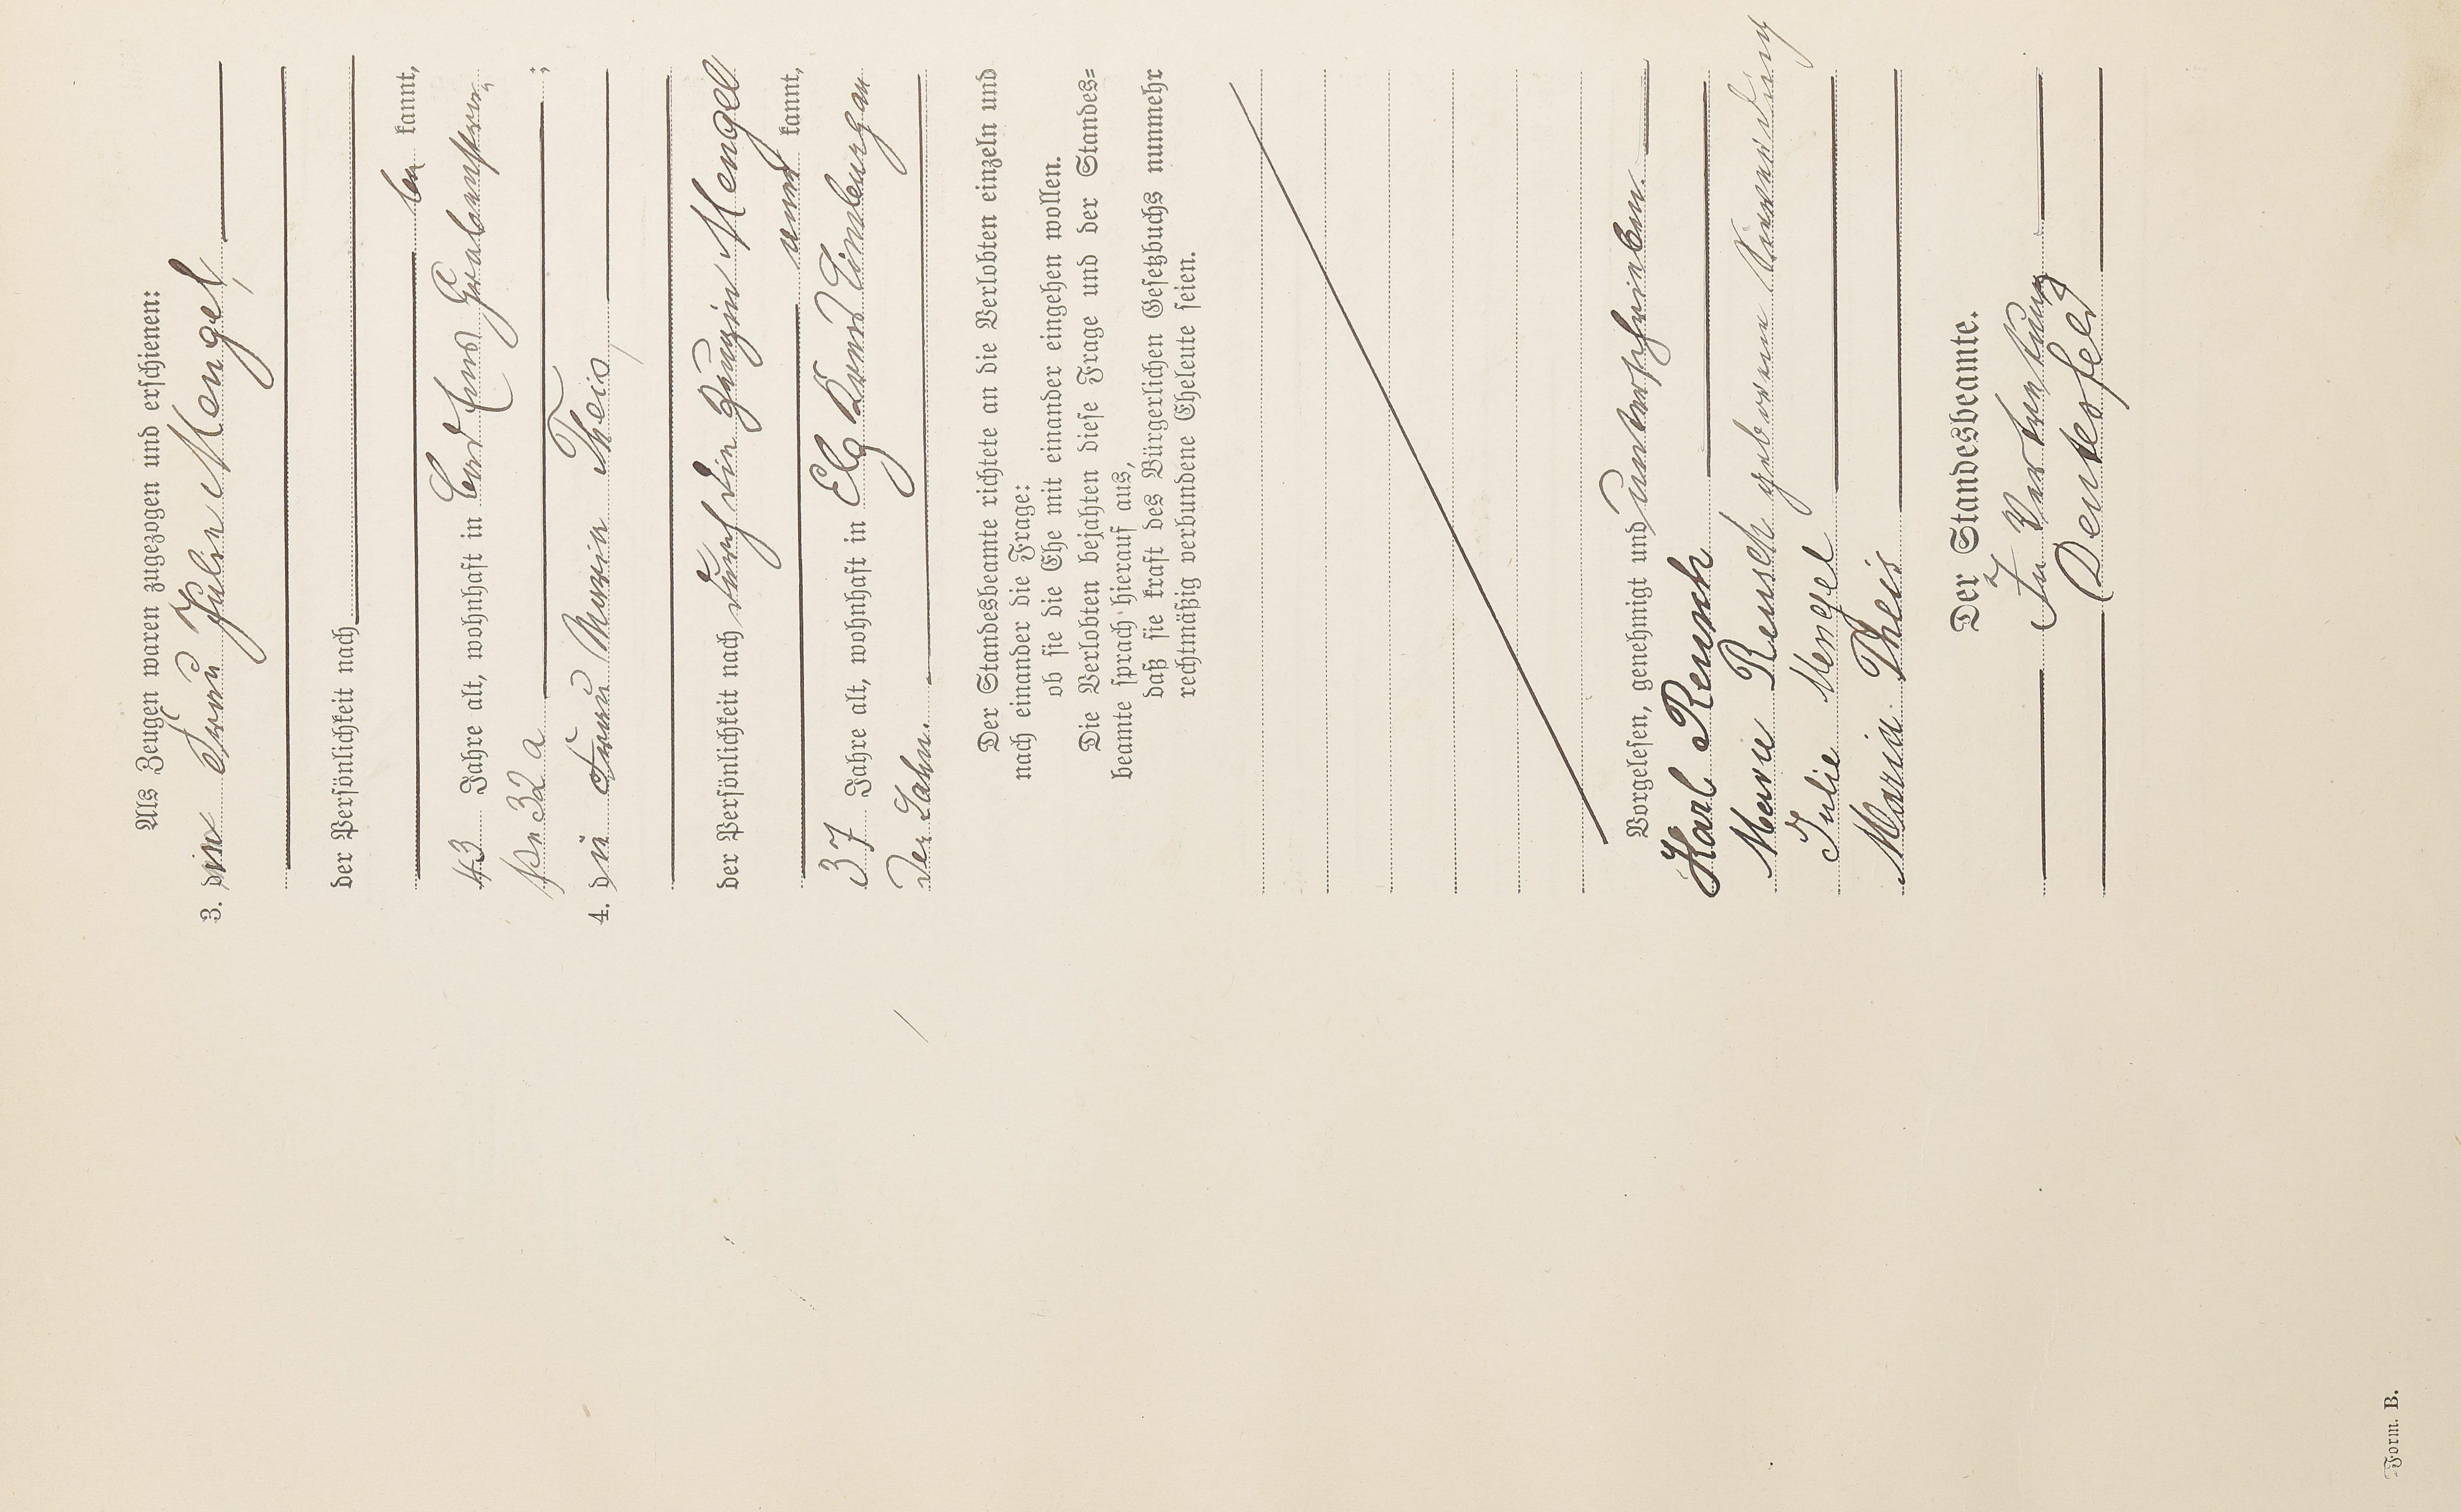 Als Zeugen waren zugezogen und erschienen:
3. die Frau Julie Mengel,
der Persönlichkeit nach
be kannt,
43 Jahre alt, wohnhaft in Bad Ems Grabenstraße
No 32 a ;
4. die Frau Maria Theis,
der Persönlichkeit nach durch die Zeugin Mengel
aner kannt,
37 Jahre alt, wohnhaft in Elz Kreis Limburg an
der Lahn.
Der Standesbeamte richtete an die Verlobten einzeln und
nach einander die Frage:
ob sie die Ehe mit einander eingehen wollen.
Die Verlobten bejahten diese Frage und der Standes=
beamte sprach hierauf aus,
daß sie kraft des Bürgerlichen Gesetzbuchs nunmehr
rechtmäßig verbundene Eheleute seien.
Vorgelesen, genehmigt und unterschrieben.
Karl Reusch
Marie Reusch geborene
Julie Mengel
Maria Theis
Der Standesbeamte.
In Vertretung
Deutesfeld
Form. B.